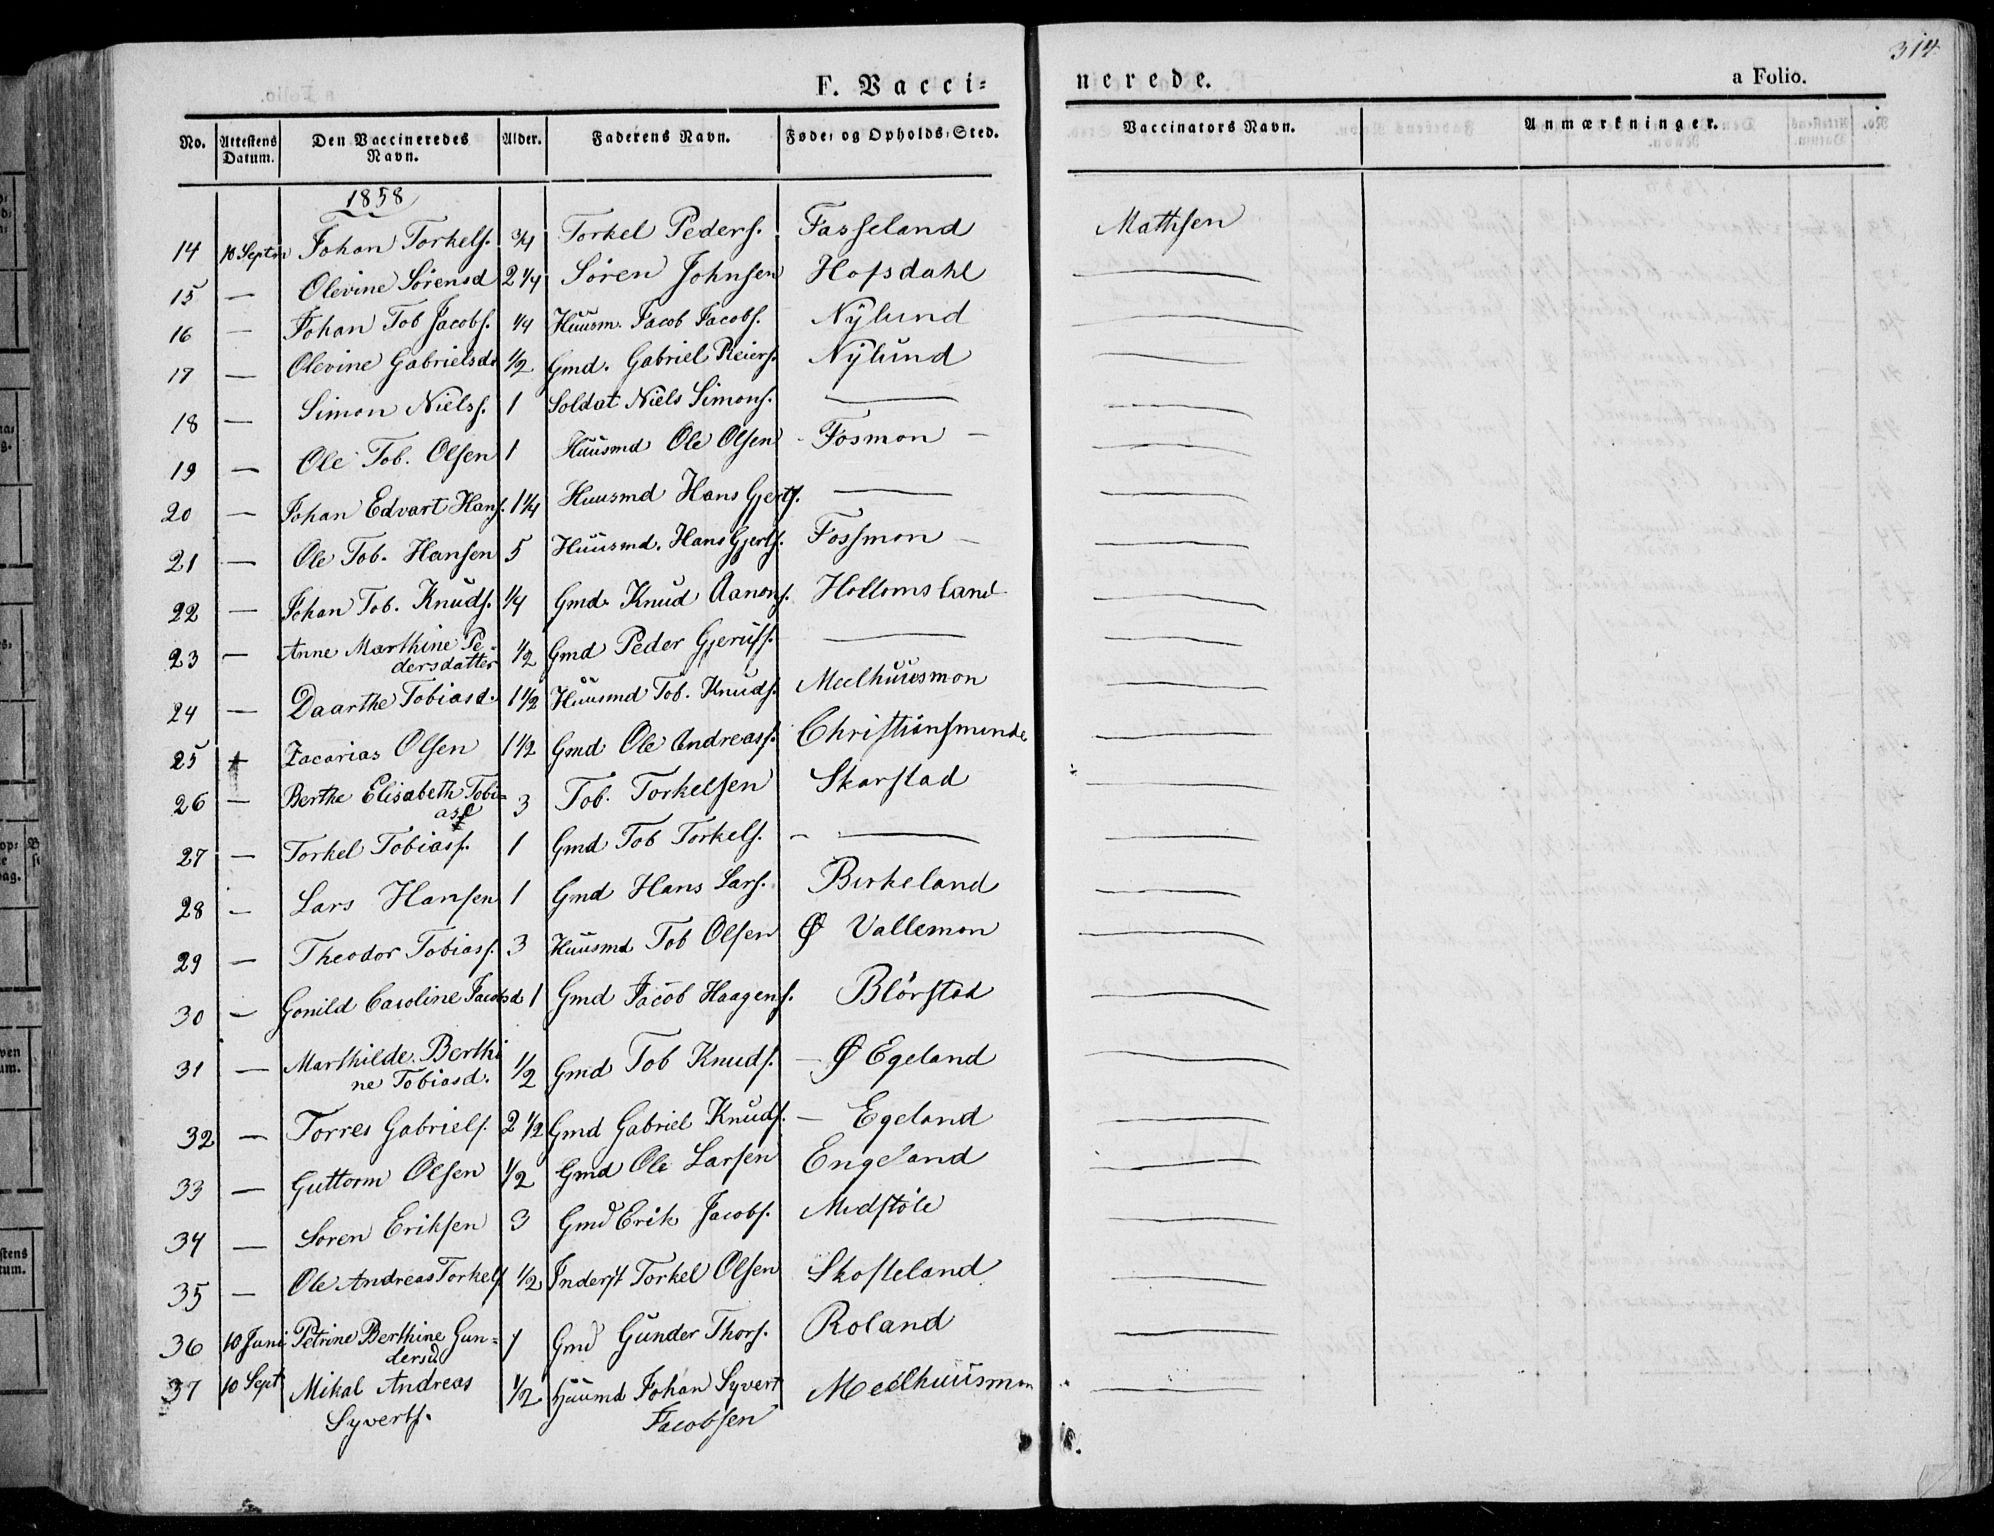 314
F. Vacci=
nerede.
a Folio.
No. Attestens Datum. Den Vaccineredes Navn. Alder. Faderens Navn. Føde= og Opholds=Sted. Vaccinators Navn. Anmærkninger.
1858
14 10 Septm Johan Torkels. 3/4 Torkel Peders. Fasseland Mathsen
15 — Olevine Sørensd 2 1/4 Søren Johnsen Hofsdahl —
16 — Johan Tob Jacobs. 1/4 Huusm. Jacob Jacobs. Nÿlund —
17 — Olevine Gabrielsdr 1/2 Gmd. Gabriel Reiers. Nÿlund —
18 — Simon Niels. 1 Soldat Niels Simons. — —
19 — Ole Tob. Olsen 1 Huusmd Ole Olsen - Fosmon — —
20 — Johan Edvart Hans. 1 1/4 Huusmd Hans Gjerts. — —
21 — Ole Tob. Hansen 5 Huusmd. Hans Gjerts. Fossmon — —
22 — Johan Tob. Knuds. 1/4 Gmd. Knud Aanons. Hollomsland —
23 — Anne Marthine Pe-
dersdatter 1/2 Gmd Peder Gjerulfs. — —
24 — Daarthe Tobiasd. 1 1/2 Huusmd Tob. Knuds. Meelhuusmon —
25 + Zacarias Olsen 1 1/2 Gmd Ole Andreass. Christiansminde —
26 — Berthe Elisabeth Tobi=
asd 3 Tob. Torkelsen Skarstad —
27 — Torkel Tobiass. 1 Gmd Tob Torkels. - — —
28 — Lars Hansen 1 Gmd Hans Lars. Birkeland —
29 — Theodor Tobiass. 3 Huusmd Tob Olsen Ø Vallemon —
30 — Gonild Caroline Jacobsd 1 Gmd Jacob Haagens. Blörstad —
31 — Marthilde Berthi
ne Tobiasd. 1/2 Gmd Tob Knuds. — Ø Egeland —
32 — Torres Gabriels. 2 1/2 Gmd Gabriel Knuds. — Egeland —
33 — Guttorm Olsen 1/2 Gmd Ole Larsen Engeland —
34 — Soren Eriksen 3 Gmd Erik Jacobs. Midstöle —
35 — Ole Andreas Torkels 1/2 Inderst Torkel Olsen Skofteland —
36 10 Juni Petrine Berthine Gun=
dersd. 1 Gmd Gunder Thors. Roland —
37 10 Sept Mikal Andreas
Syverts. 1/2 Huumd Johan Syvert
Jacobsen Meelhuusmon —